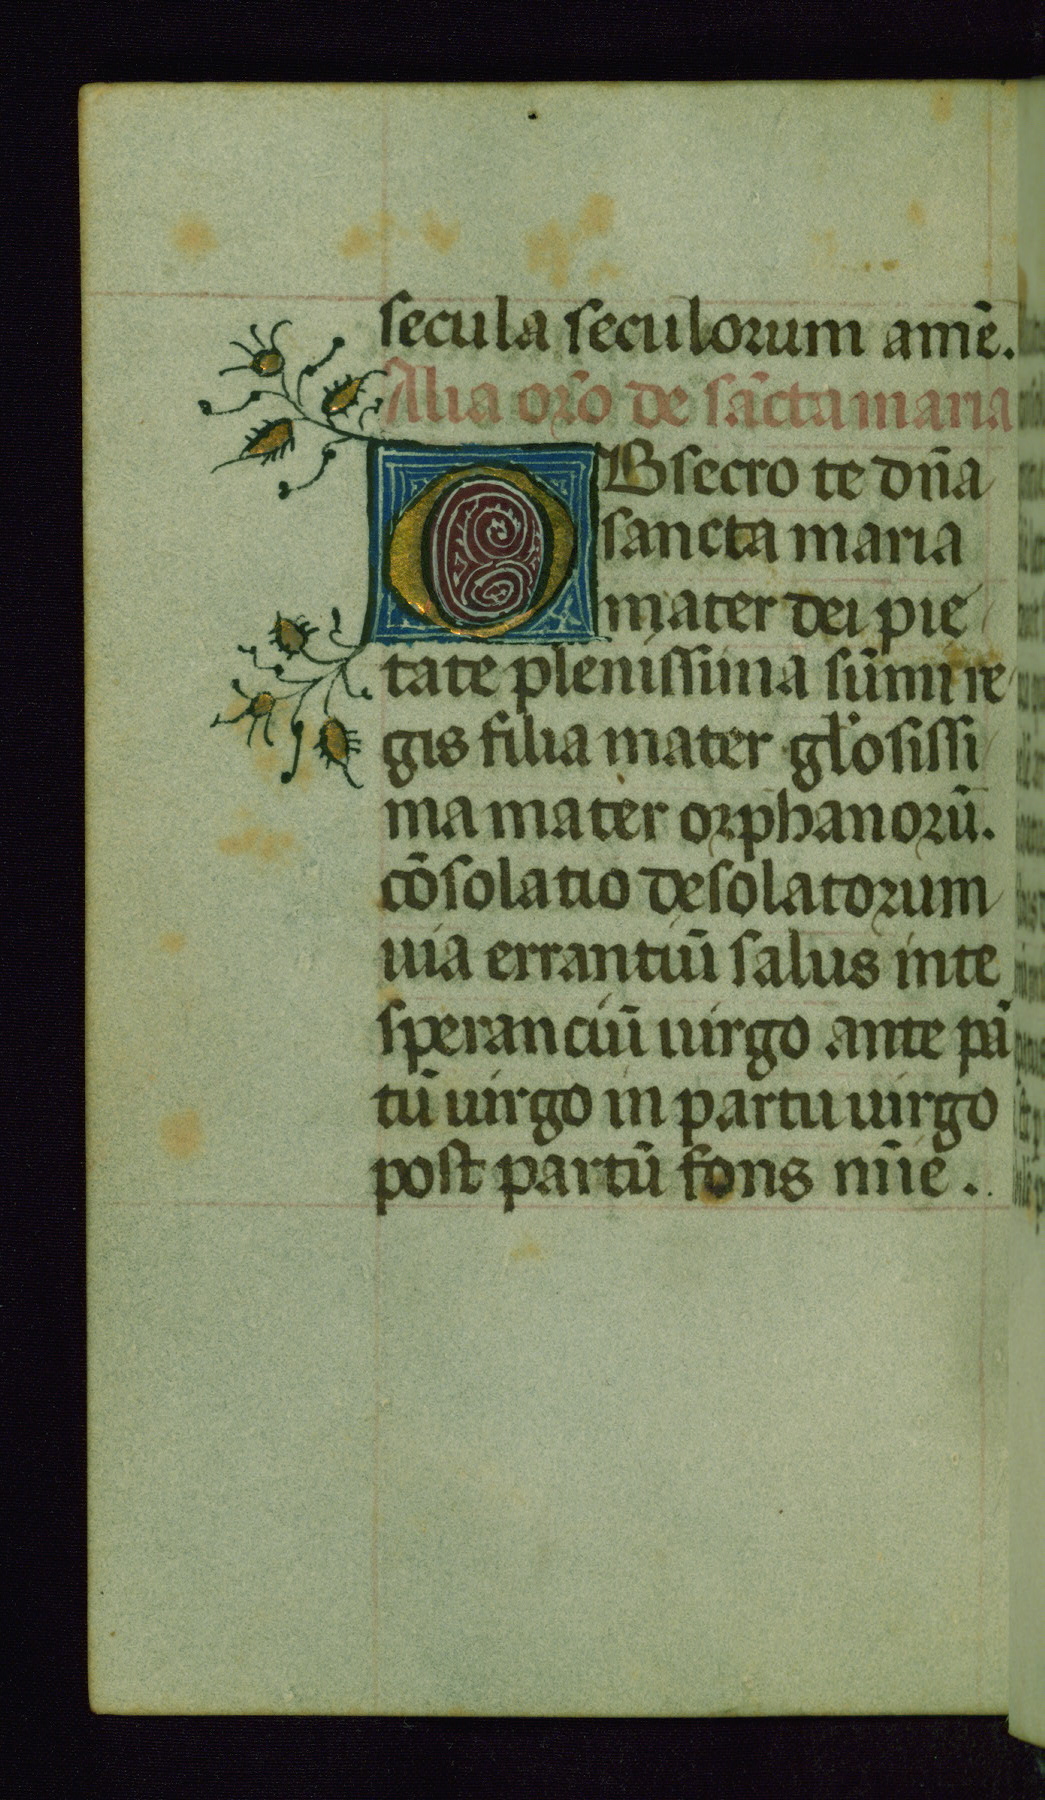 secula seculorum amē.
Alia or̄o de sācta maria
OBsecro te dn̄a
sancta maria
mater dei pie
tate plenissima sūmi re
gis filia mater gl̄osissi
ma mater orphanorū.
cōsolatio desolatorum
uia errantiū salus in te
speranciū uirgo ante pā
tū uirgo in partu uirgo
post partū fons mīe.